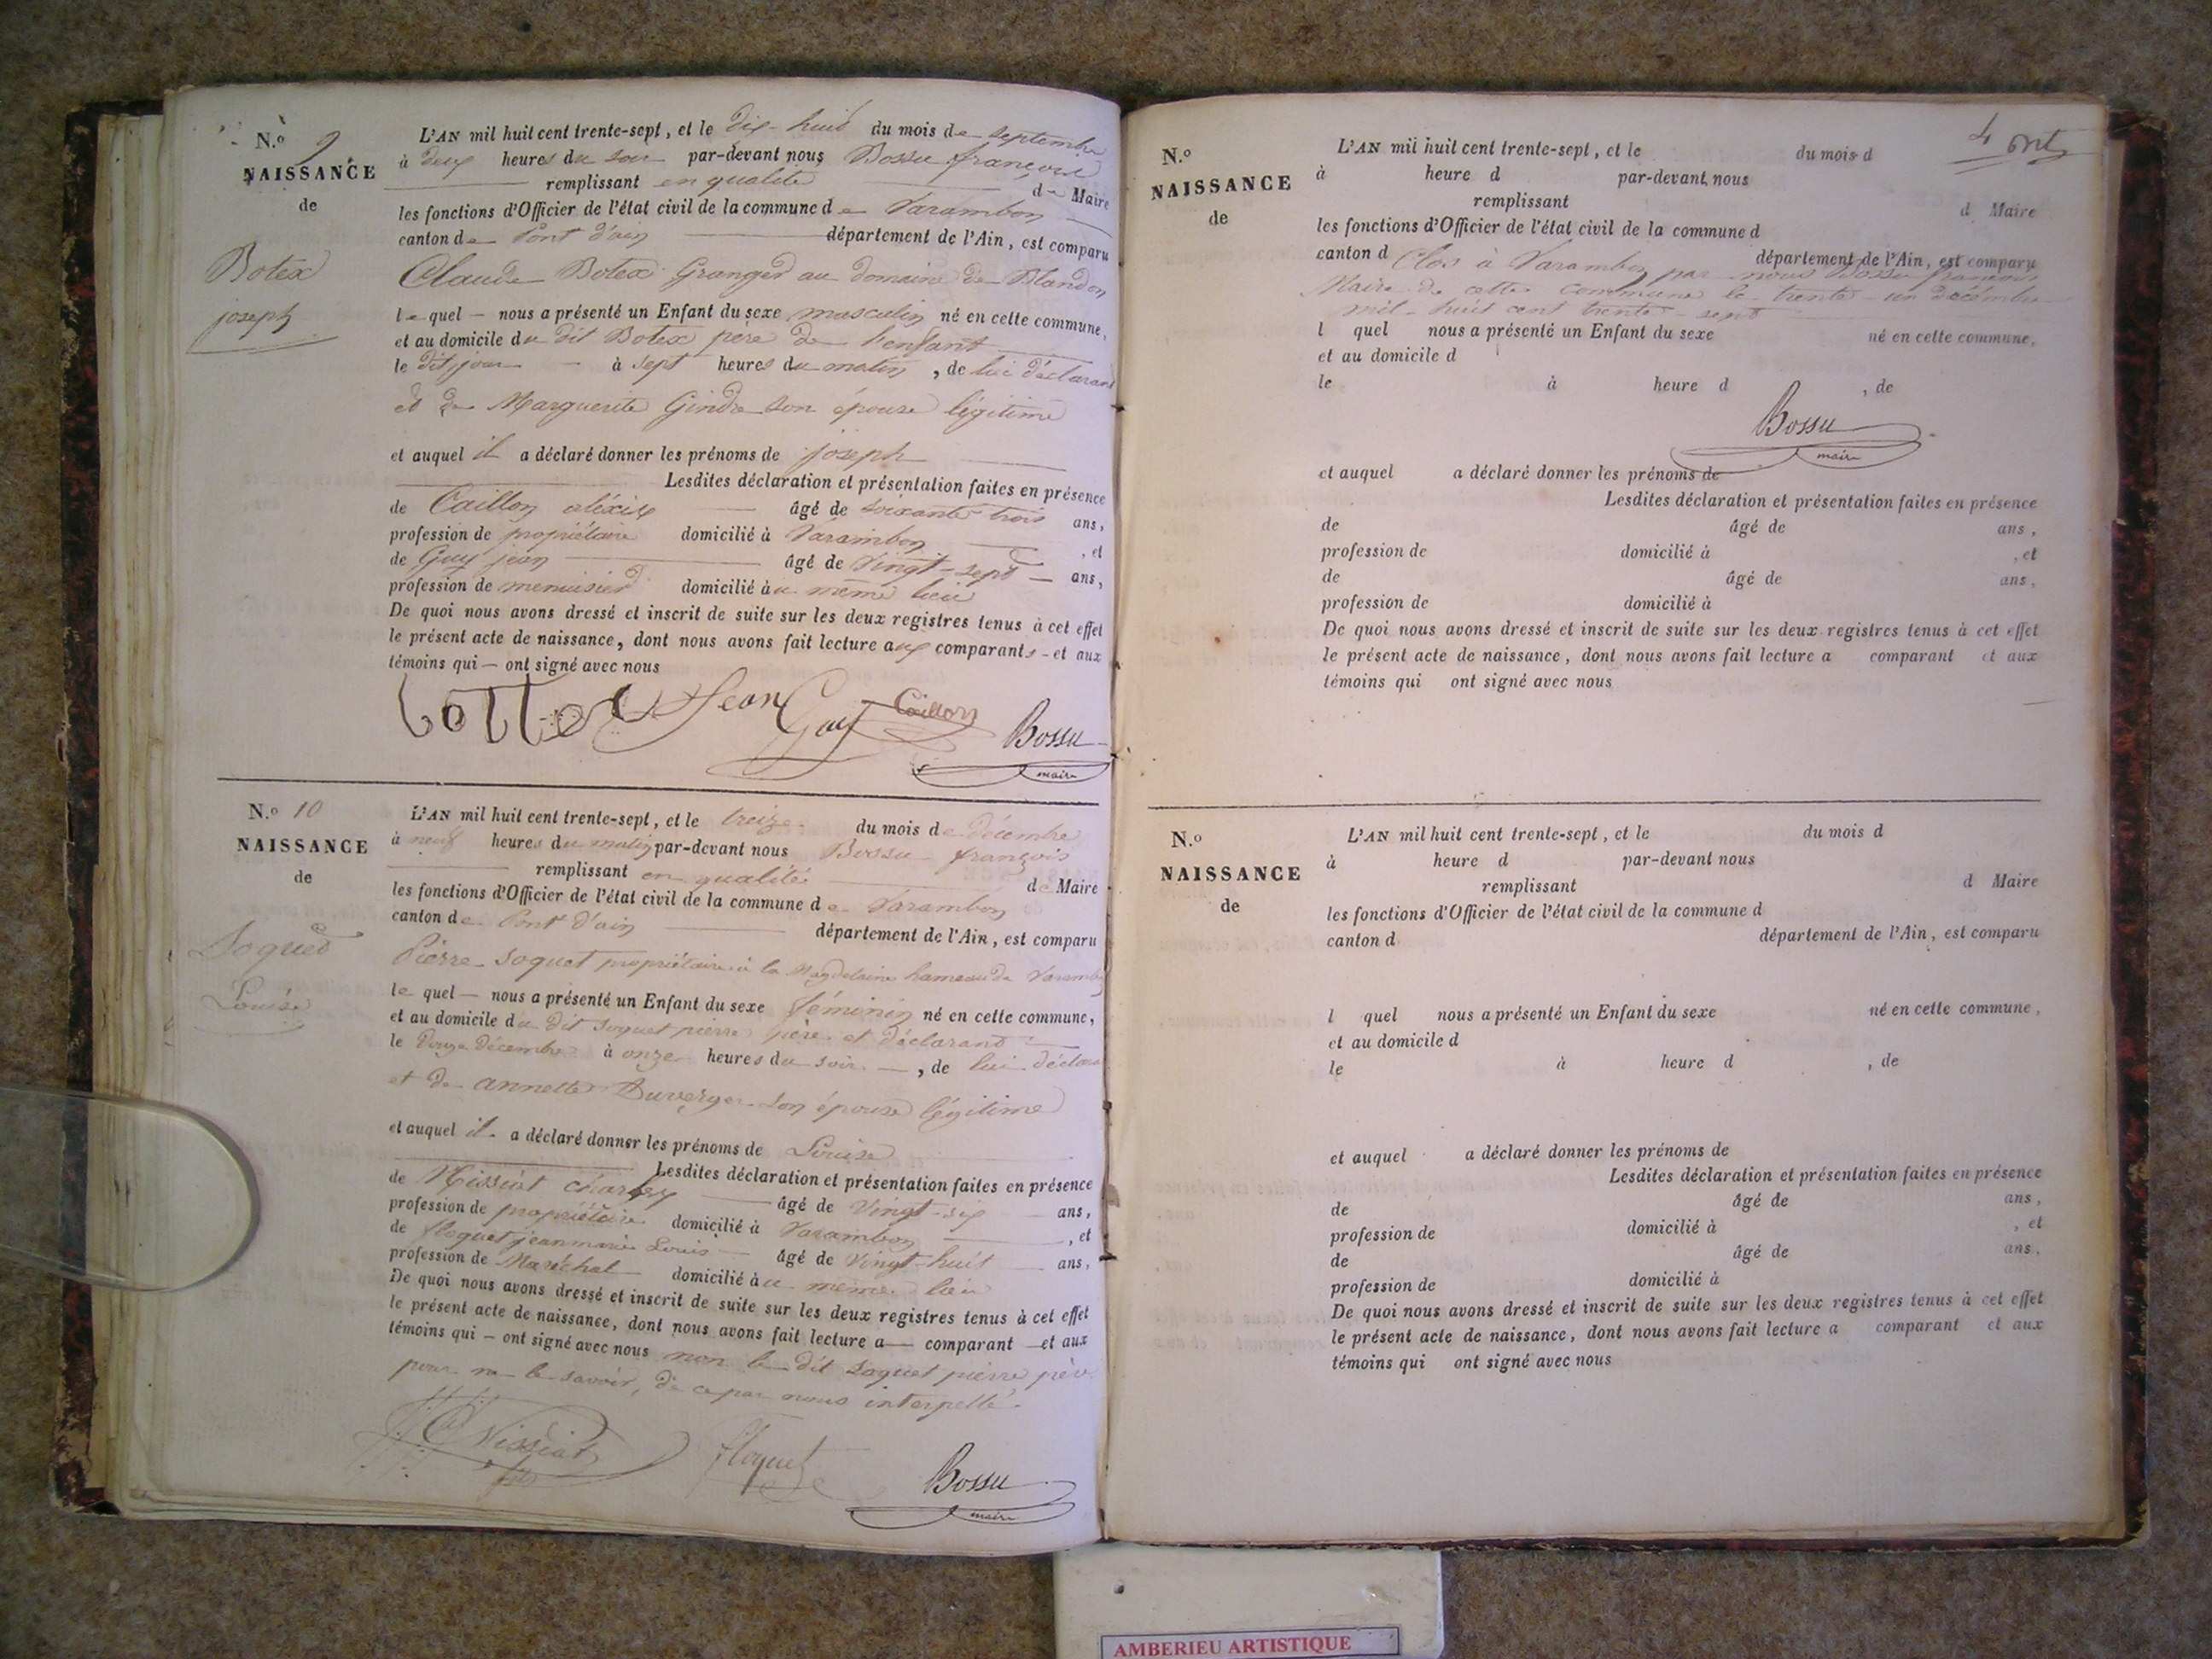 N.o 9.
NAISSANCE
de
Botex
joseph
L'AN mil huit cent trente-sept, et le dix-huit du mois de septembre
à deux heures du soir par-devant nous Bossu françois
remplissant en qualité de Maire
les fonctions d'Officier de l'état civil de la commune de Varambon
canton de Pont d'ain département de l'Ain, est comparu
Claude Botex Granger au domaine de Blandon
le quel nous a présenté un Enfant du sexe masculin né en cette commune,
et au domicile du dit Botex père de l'enfant
le dit jour à sept heures du matin, de lui déclarant
et de Marguerite Gindre son épouse légitime
et auquel il a déclaré donner les prénoms de joseph
Lesdites déclaration et présentation faites en présence
de Caillon aléxis âgé de soixante trois ans,
profession de propriétaire domicilié à Varambon, et
de Guy jean âgé de Vingt-sept ans,
profession de menuisier domicilié au même lieu
De quoi nous avons dressé et inscrit de suite sur les deux registres tenus à cet effet
le présent acte de naissance, dont nous avons fait lecture aux comparants et aux
témoins qui ont signé avec nous
Jean Guy Caillon Bossu
maire
N.o 10
NAISSANCE
de
Soquet
Louise
L'AN mil huit cent trente-sept, et le treize du mois de décembre
à neuf heures du matin par-devant nous Bossu françois
remplissant en qualité de Maire
les fonctions d'Officier de l'état civil de la commune de Varambon
canton de Pont d'ain département de l'Ain, est comparu
Pierre Soquet propriétaire à la Magdelaine hameau de Varambon
le quel nous a présenté un Enfant du sexe féminin né en cette commune,
et au domicile du dit Soquet pierre père et déclarant
le Douze décembre à onze heures du soir, de lui déclara
et de annette Duverger son épouse légitime
et auquel il a déclaré donner les prénoms de Louise
Lesdites déclaration et présentation faites en présence
de Nissiat charles âgé de Vingt-six ans,
profession de propriétaire domicilié à Varambon, et
de floquet jeanmarie Louis âgé de Vingt-huit ans,
profession de Maréchal domicilié au même lieu
De quoi nous avons dressé et inscrit de suite sur les deux registres tenus à cet effet
le présent acte de naissance, dont nous avons fait lecture a comparant et aux
témoins qui ont signé avec nous non le dit Soquet pierre père
pour ne le savoir, de ce par nous interpellé.
Nissiat floquet Bossu
maire
4
N.o
NAISSANCE
de
L'AN mil huit cent trente-sept, et le du mois d
à heure d par-devant nous
remplissant d Maire
les fonctions d'Officier de l'état civil de la commune d
canton d département de l'Ain, est comparu
Clos à Varambon par nous Bossu françois
Maire de cette commune le trente-un décembre
mil-huit cent trente-sept
l quel nous a présenté un Enfant du sexe né en cette commune,
et au domicile d
le à heure d , de
Bossu
maire
et auquel a déclaré donner les prénoms de
Lesdites déclaration et présentation faites en présence
de âgé de ans,
profession de domicilié à , et
de âgé de ans,
profession de domicilié à
De quoi nous avons dressé et inscrit de suite sur les deux registres tenus à cet effet
le présent acte de naissance, dont nous avons fait lecture a comparant et aux
témoins qui ont signé avec nous
N.o
NAISSANCE
de
L'AN mil huit cent trente-sept, et le du mois d
à heure d par-devant nous
remplissant d Maire
les fonctions d'Officier de l'état civil de la commune d
canton d département de l'Ain, est comparu
l quel nous a présenté un Enfant du sexe né en cette commune,
et au domicile d
le à heure d , de
et auquel a déclaré donner les prénoms de
Lesdites déclaration et présentation faites en présence
de âgé de ans,
profession de domicilié à , et
de âgé de ans.
profession de domicilié à
De quoi nous avons dressé et inscrit de suite sur les deux registres tenus à cet effet
le présent acte de naissance, dont nous avons fait lecture a comparant et aux
témoins qui ont signé avec nous
AMBERIEU ARTISTIQUE